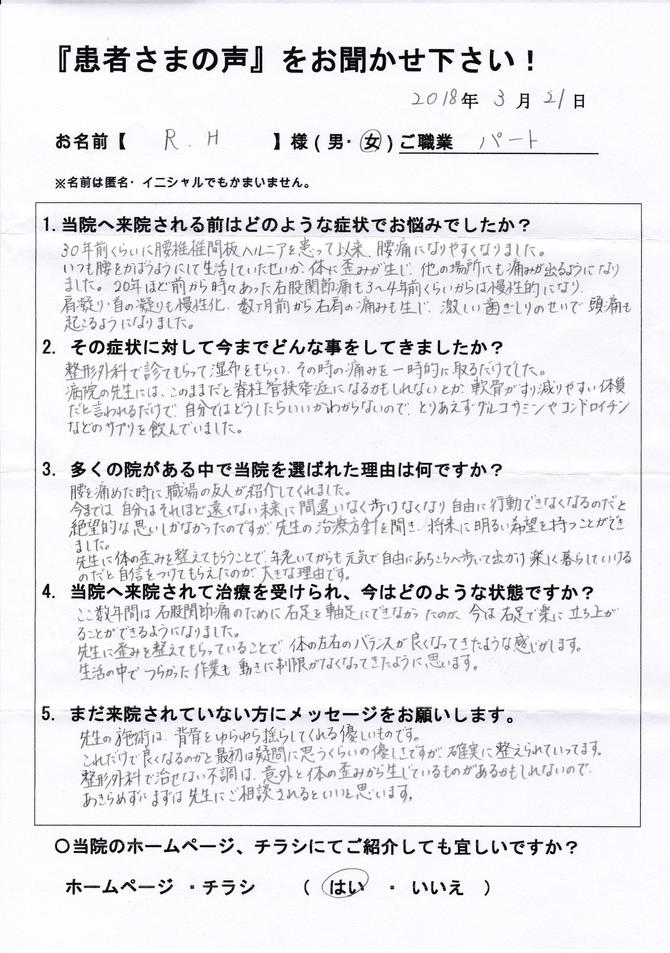 『患者さまの声』をお聞かせ下さい！
2018年 3月 21日
お名前【 R.H 】様(男・女)ご職業 パート
※名前は匿名・イニシャルでもかまいません。
1.当院へ来院される前はどのような症状でお悩みでしたか？
30年前くらいに腰椎椎間板ヘルニアを患って以来、腰痛になりやすくなりました。
いつも腰をかばうようにして生活していたせいか、体に歪みが生じ、他の場所にも痛みが出るようになり
ました。20年ほど前から時々あった右股関節痛も3～4年前くらいからは慢性的になり、
肩凝り・首の凝りも慢性化、数ヶ月前から右肩の痛みも生じ、激しい歯ぎしりのせいで頭痛も
起こるようになりました。
2. その症状に対して今までどんな事をしてきましたか？
整形外科で診てもらって湿布をもらい、その時の痛みを一時的に取るだけでした。
病院の先生には、このままだと脊柱管狭窄症になるかもしれないとか、軟骨がすり減りやすい体質
だと言われるだけで、自分ではどうしたらいいかわからないので、とりあえずグルコサミンやコンドロイチン
などのサプリを飲んでいました。
3. 多くの院がある中で当院を選ばれた理由は何ですか？
腰を痛めた時に職場の友人が紹介してくれました。
今までは、自分はそれほど遠くない未来に間違いなく歩けなくなり自由に行動できなくなるのだと
絶望的な思いしかなかったのですが、先生の治療方針を聞き、将来に明るい希望を持つことができ
ました。
先生に体の歪みを整えてもらうことで、年老いてからも元気で自由にあちこちへ歩いて出かけ楽しく暮らしていける
のだと自信をつけてもらえたのが、大きな理由です。
4. 当院へ来院されて治療を受けられ、今はどのような状態ですか？
ここ数年間は右股関節痛のために右足を軸足にできなかったのが、今は右足で楽に立ち上が
ることができるようになりました。
先生に歪みを整えてもらっていることで、体の左右のバランスが良くなってきたような感じがします。
生活の中でつらかった作業も動きに制限がなくなってきたように思います。
5. まだ来院されていない方にメッセージをお願いします。
先生の施術は、背骨をゆらゆら揺らしてくれる優しいものです。
これだけで良くなるのかと最初は疑問に思うくらいの優しさですが、確実に整えられていってます。
整形外科で治せない不調は、意外と体の歪みから生じているものがあるかもしれないので、
あきらめずにまずは先生にご相談されるといいと思います。
〇当院のホームページ、チラシにてご紹介しても宜しいですか？
ホームページ ・チラシ （ はい ・ いいえ ）